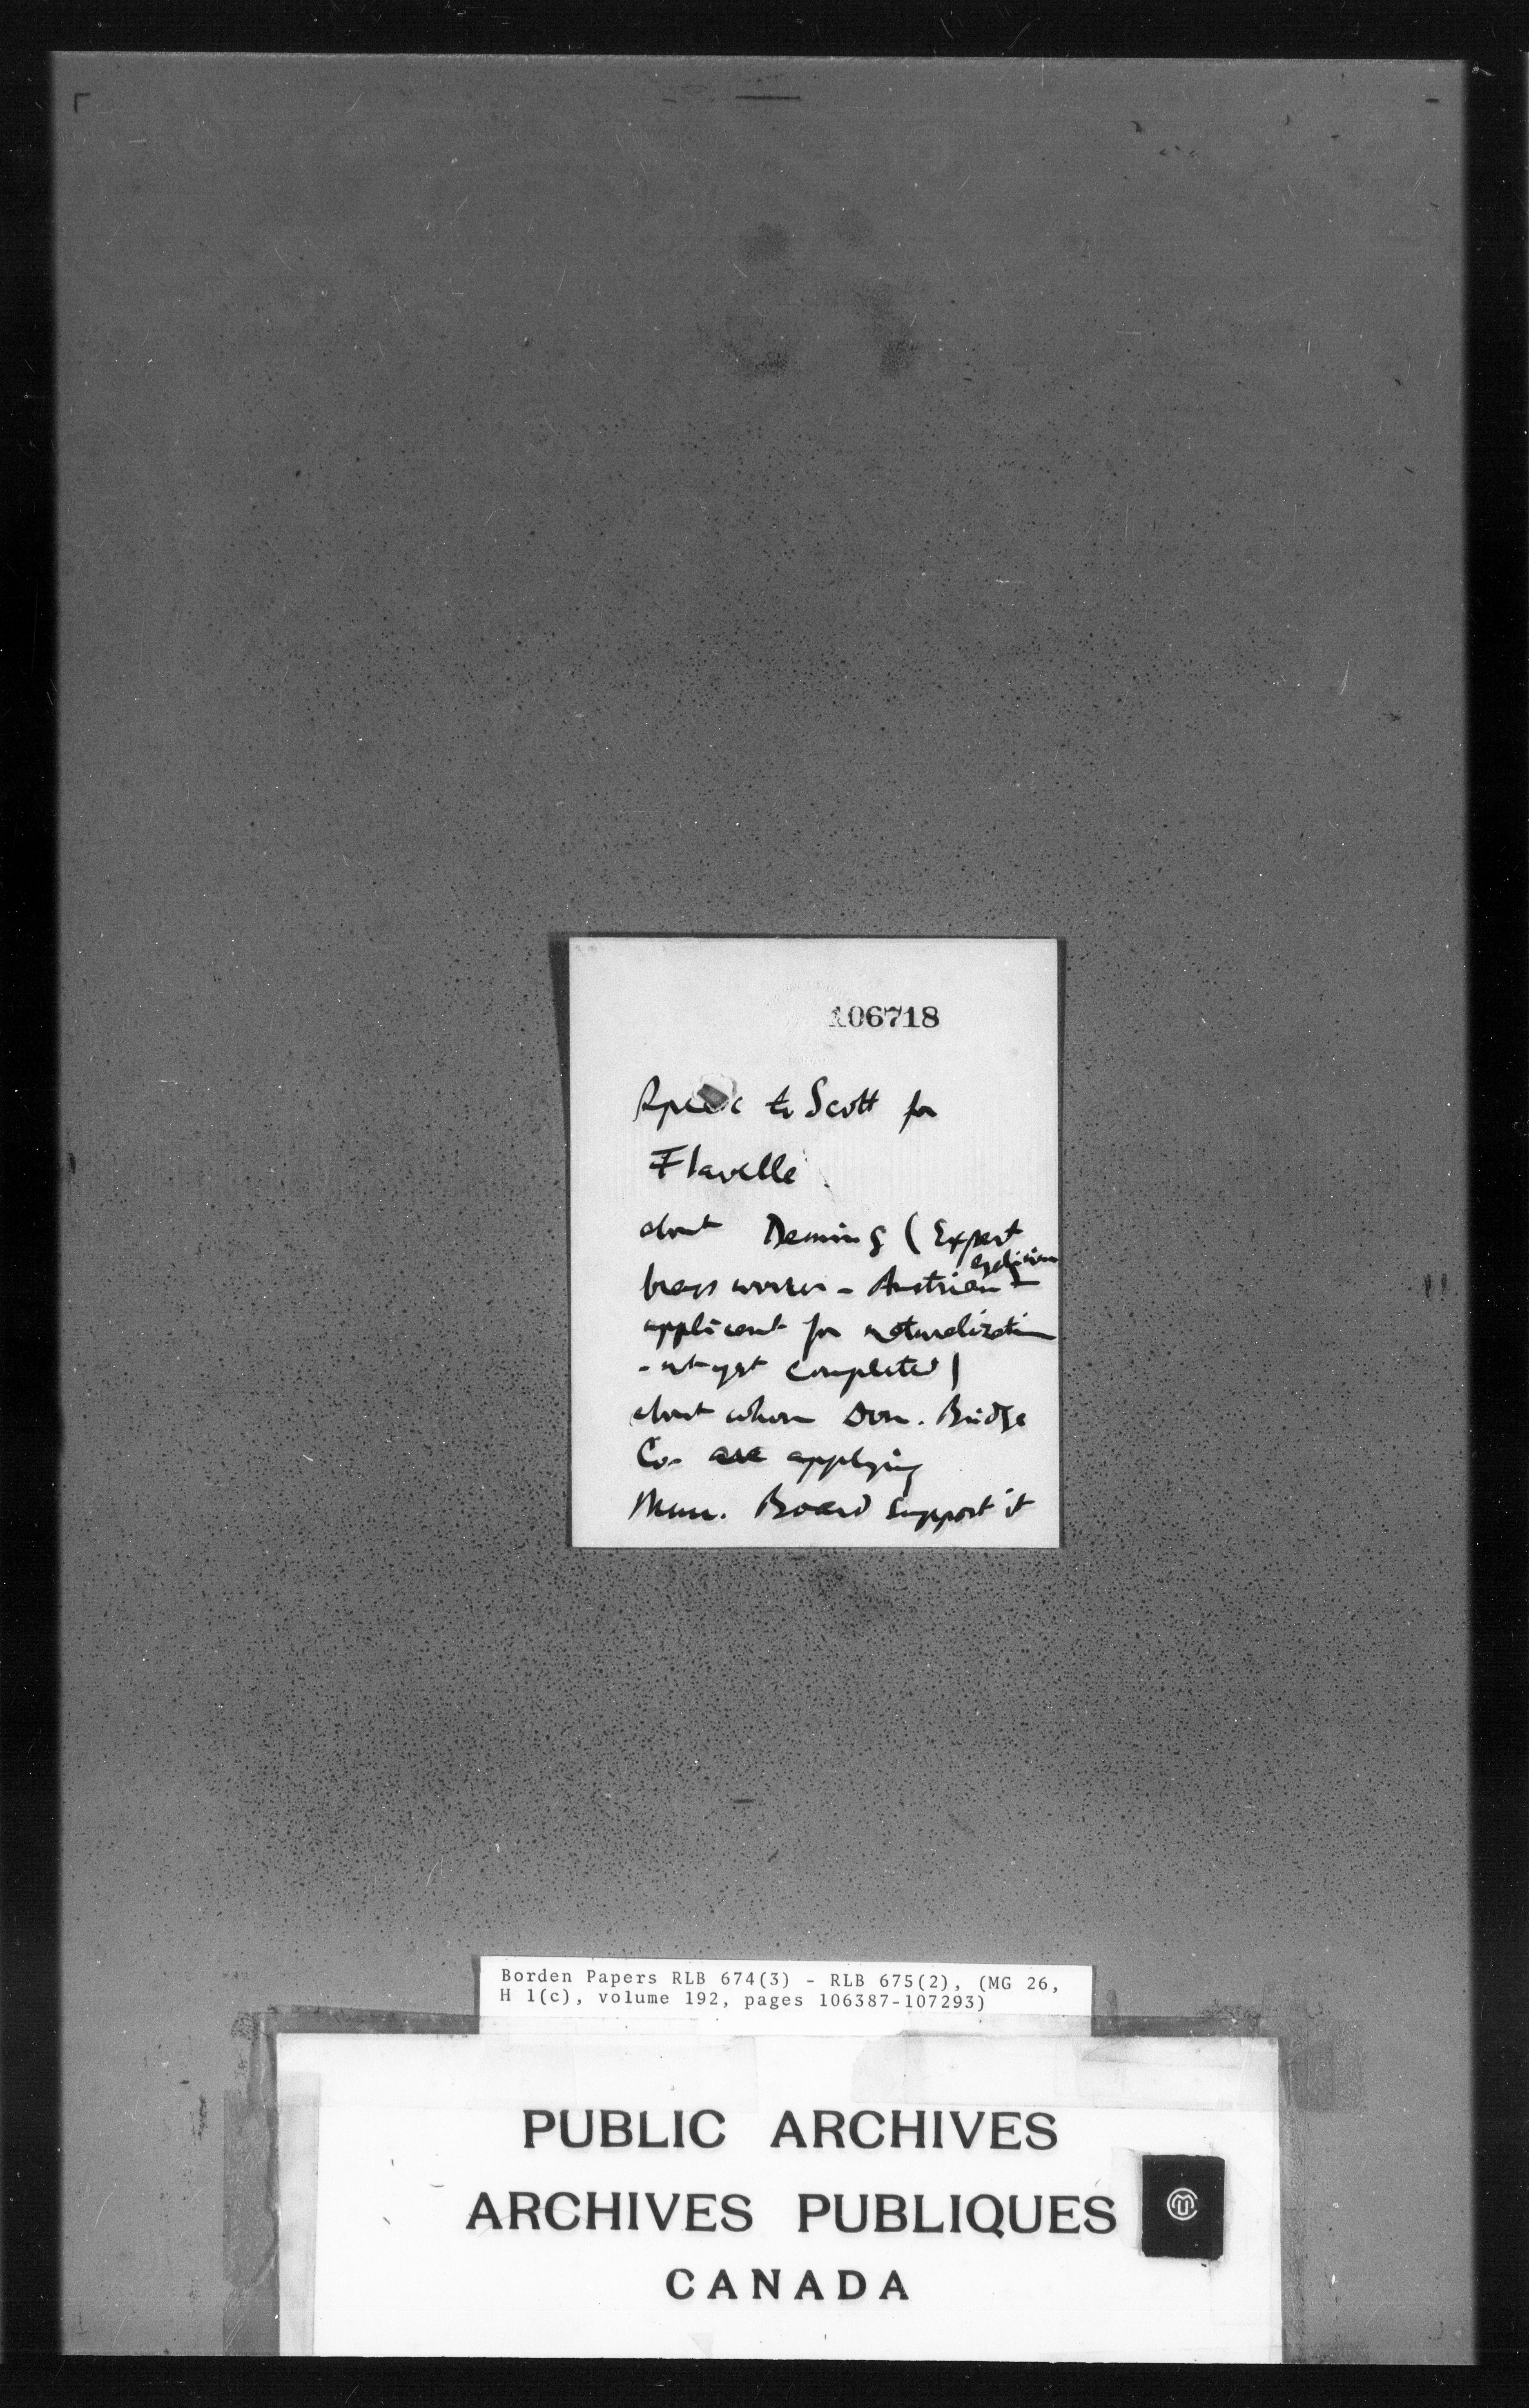 106718
Speak to Scott for
Flavelle
about Deming (Expert
brass worker - Austrian -
applicant for naturalization
- not yet completed)
about whom Dom. Bridge
Co. are applying
Mun. Board support it
Borden Papers RLB 674(3) - RLB 675(2), (MG 26,
H 1(c), volume 192, pages 106387-107293)
PUBLIC ARCHIVES
ARCHIVES PUBLIQUES
CANADA